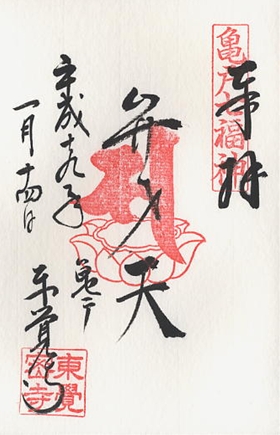 亀戸七福神
奉拝
弁才天
平成十九年
一月十四日
亀戸
東覚寺
東覺
密寺